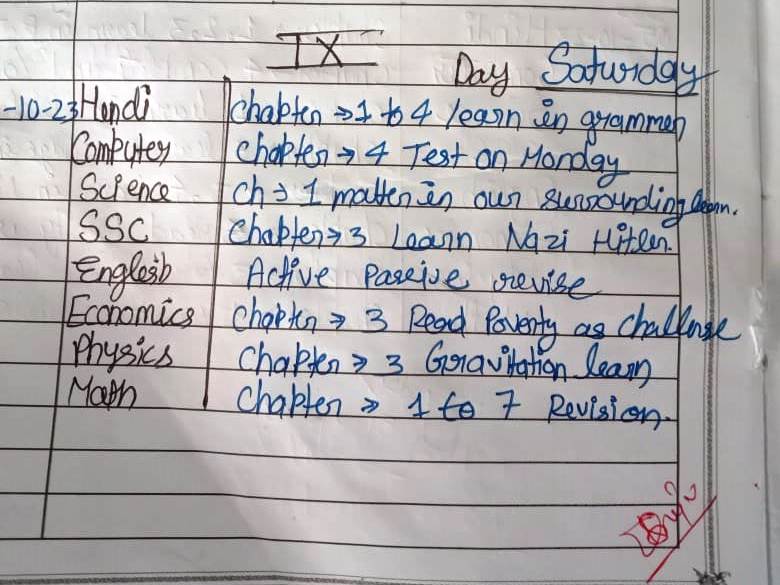 IX
Day Saturday
-10-23 Hendi chapter → 1 to 4 learn in grammer
Computer chapter → 4 Test on Monday
Science ch → 1 matter in our surrounding learn.
SSC chapter → 3 Learn Nazi Hitler.
Englesib Active Passive revise
Economics chapter → 3 Read Poverty as challense
Physics chapter → 3 Gravitation learn
Math chapter → 1 to 7 Revision.